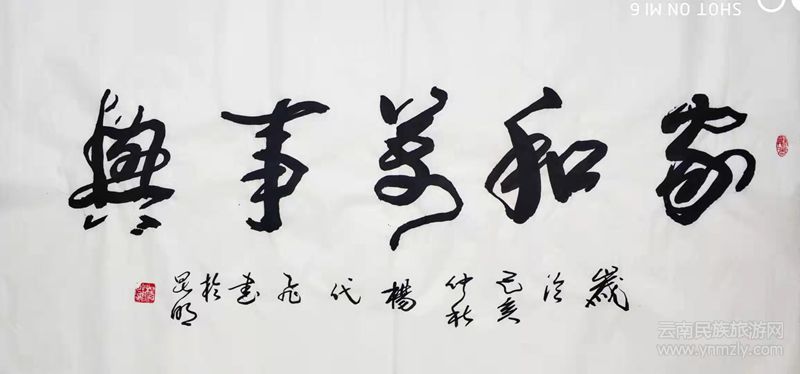 家和萬事興
歲次己亥仲秋楊代飛書於昆明
SHOT ON MI 6
云南民族旅游网
www.ynmzly.com